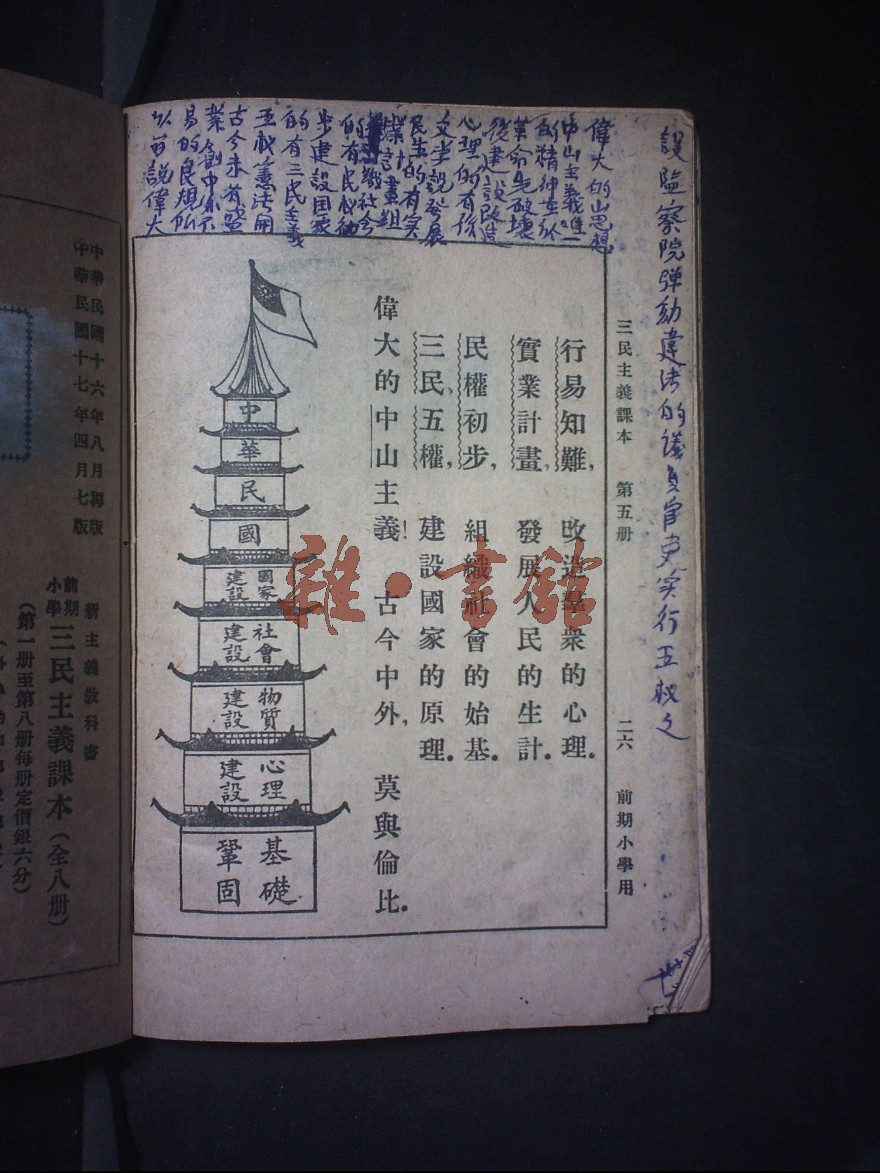 設監察院彈劾違法的議員官吏實行五权之
三民主義課本　第五册　二六　前期小學用
偉大的山思想
中山主義唯一
的精神在於
革命先破壞
後建設改造
心理的有孫
文學說發展
民生的有實
業計畫組
社會
的有民权初
步建設国家
的有三民主義
五权憲法開
古今未有
業創中外不
易的良規所
以可說偉大
行易知難，改造羣衆的心理。
實業計畫，發展人民的生計。
民權初步，組織社會的始基。
三民、五權，建設國家的原理。
偉大的中山主義！古今中外，莫與倫比。
中
華
民
國
國家建設
社會建設
物質建設
心理建設
基礎鞏固
雜·書館
中華民國十六年八月再版
中華民國十七年四月七版
新主義教科書
前期小學三民主義課本（全八册）
（第一册至第八册每册定價銀六分）